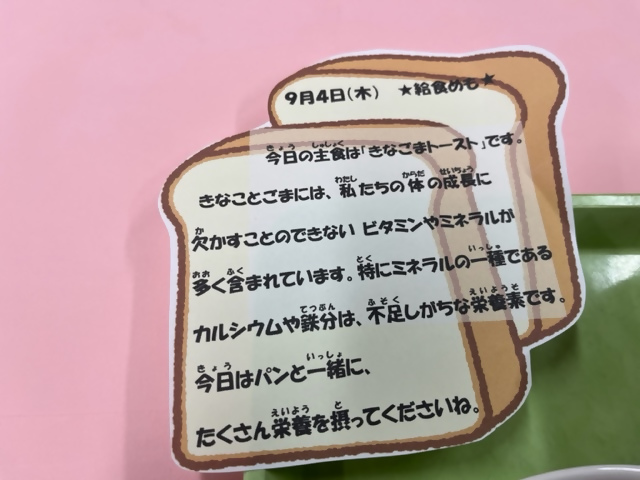 9月4日(木) ★給食めも★
今日の主食は「きなごまトースト」です。
きなことごまには、私たちの体の成長に
欠かすことのできない ビタミンやミネラルが
多く含まれています。特にミネラルの一種である
カルシウムや鉄分は、不足しがちな栄養素です。
今日はパンと一緒に、
たくさん栄養を摂ってくださいね。